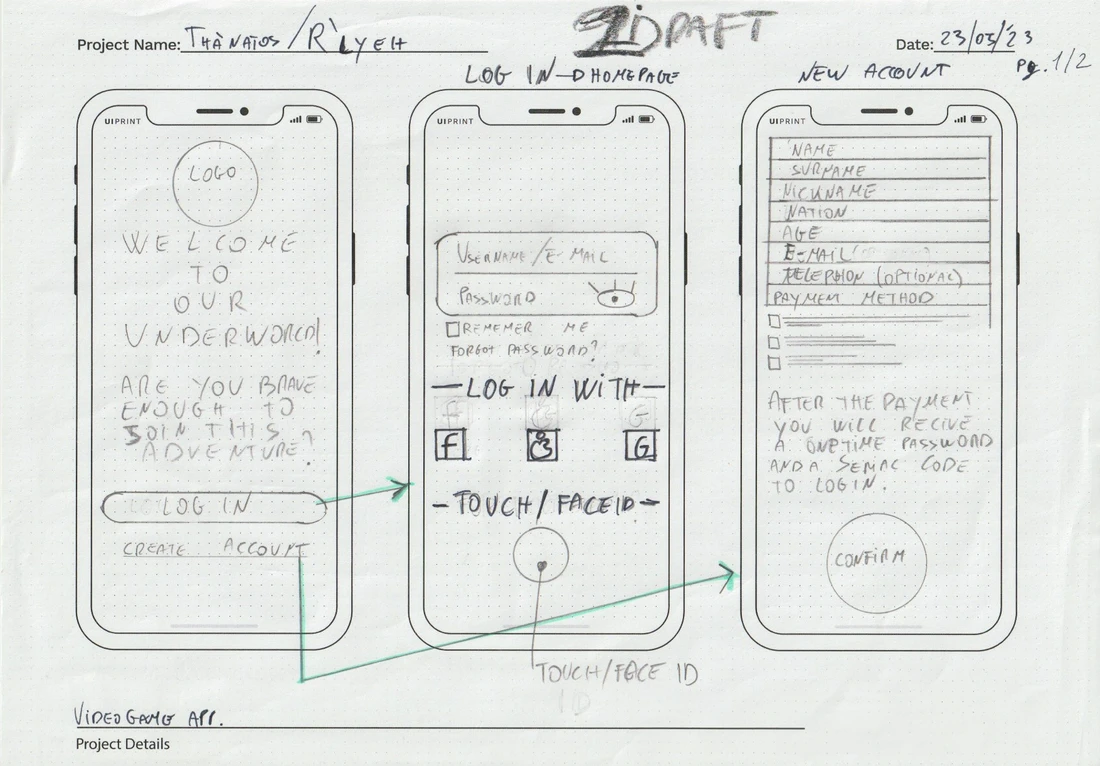 Project Name: THÀNATOS / R'LYEH
DRAFT
Date: 23/03/23
Pg. 1/2
LOG IN → HOMEPAGE
NEW ACCOUNT
UIPRINT
LOGO
WELCOME
TO
OUR
UNDERWORLD!
ARE YOU BRAVE
ENOUGH TO
JOIN THIS
ADVENTURE?
LOG IN
CREATE ACCOUNT
UIPRINT
USERNAME/E-MAIL
PASSWORD
REMEMER ME
FORGOT PASSWORD?
—LOG IN WITH—
f
G
- TOUCH/FACE ID -
TOUCH/FACE ID
ID
UIPRINT
NAME
SURNAME
NICKNAME
NATION
AGE
E-MAIL
TELEPHON (OPTIONAL)
PAYMENT METHOD
AFTER THE PAYMENT
YOU WILL RECIVE
A ONETIME PASSWORD
AND A SERIAL CODE
TO LOGIN.
CONFIRM
VIDEOGAME APP.
Project Details